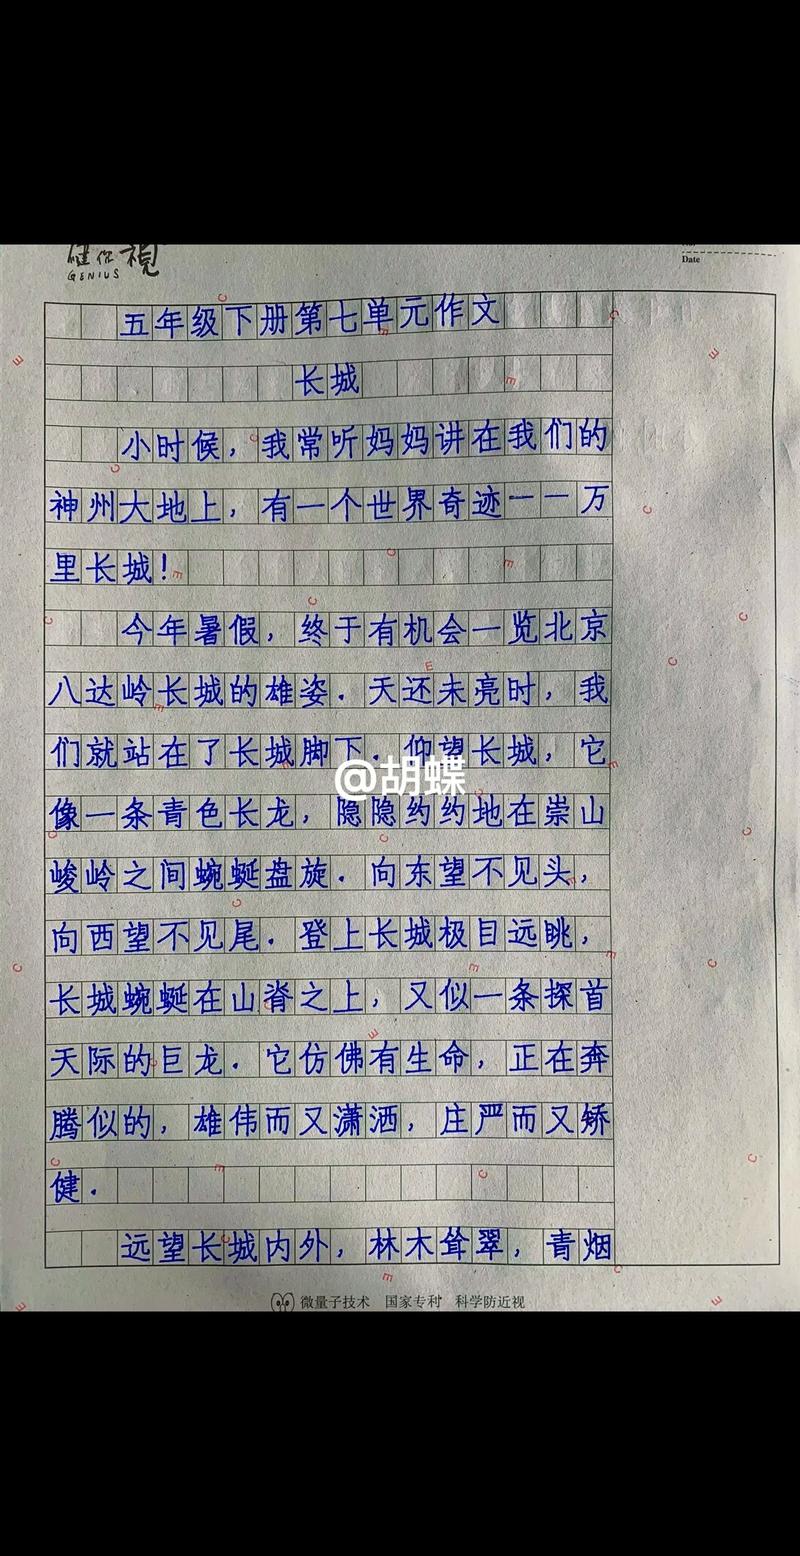 健你視
GENIUS
Date
五年级下册第七单元作文
长城
小时候，我常听妈妈讲在我们的
神州大地上，有一个世界奇迹一一万
里长城！
今年暑假，终于有机会一览北京
八达岭长城的雄姿．天还未亮时，我
们就站在了长城脚下．仰望长城，它
@胡蝶
像一条青色长龙，隐隐约约地在崇山
峻岭之间蜿蜒盘旋．向东望不见头，
向西望不见尾．登上长城极目远眺，
长城蜿蜒在山脊之上，又似一条探首
天际的巨龙．它仿佛有生命，正在奔
腾似的，雄伟而又潇洒，庄严而又矫
健．
远望长城内外，林木耸翠，青烟
微量子技术 国家专利 科学防近视